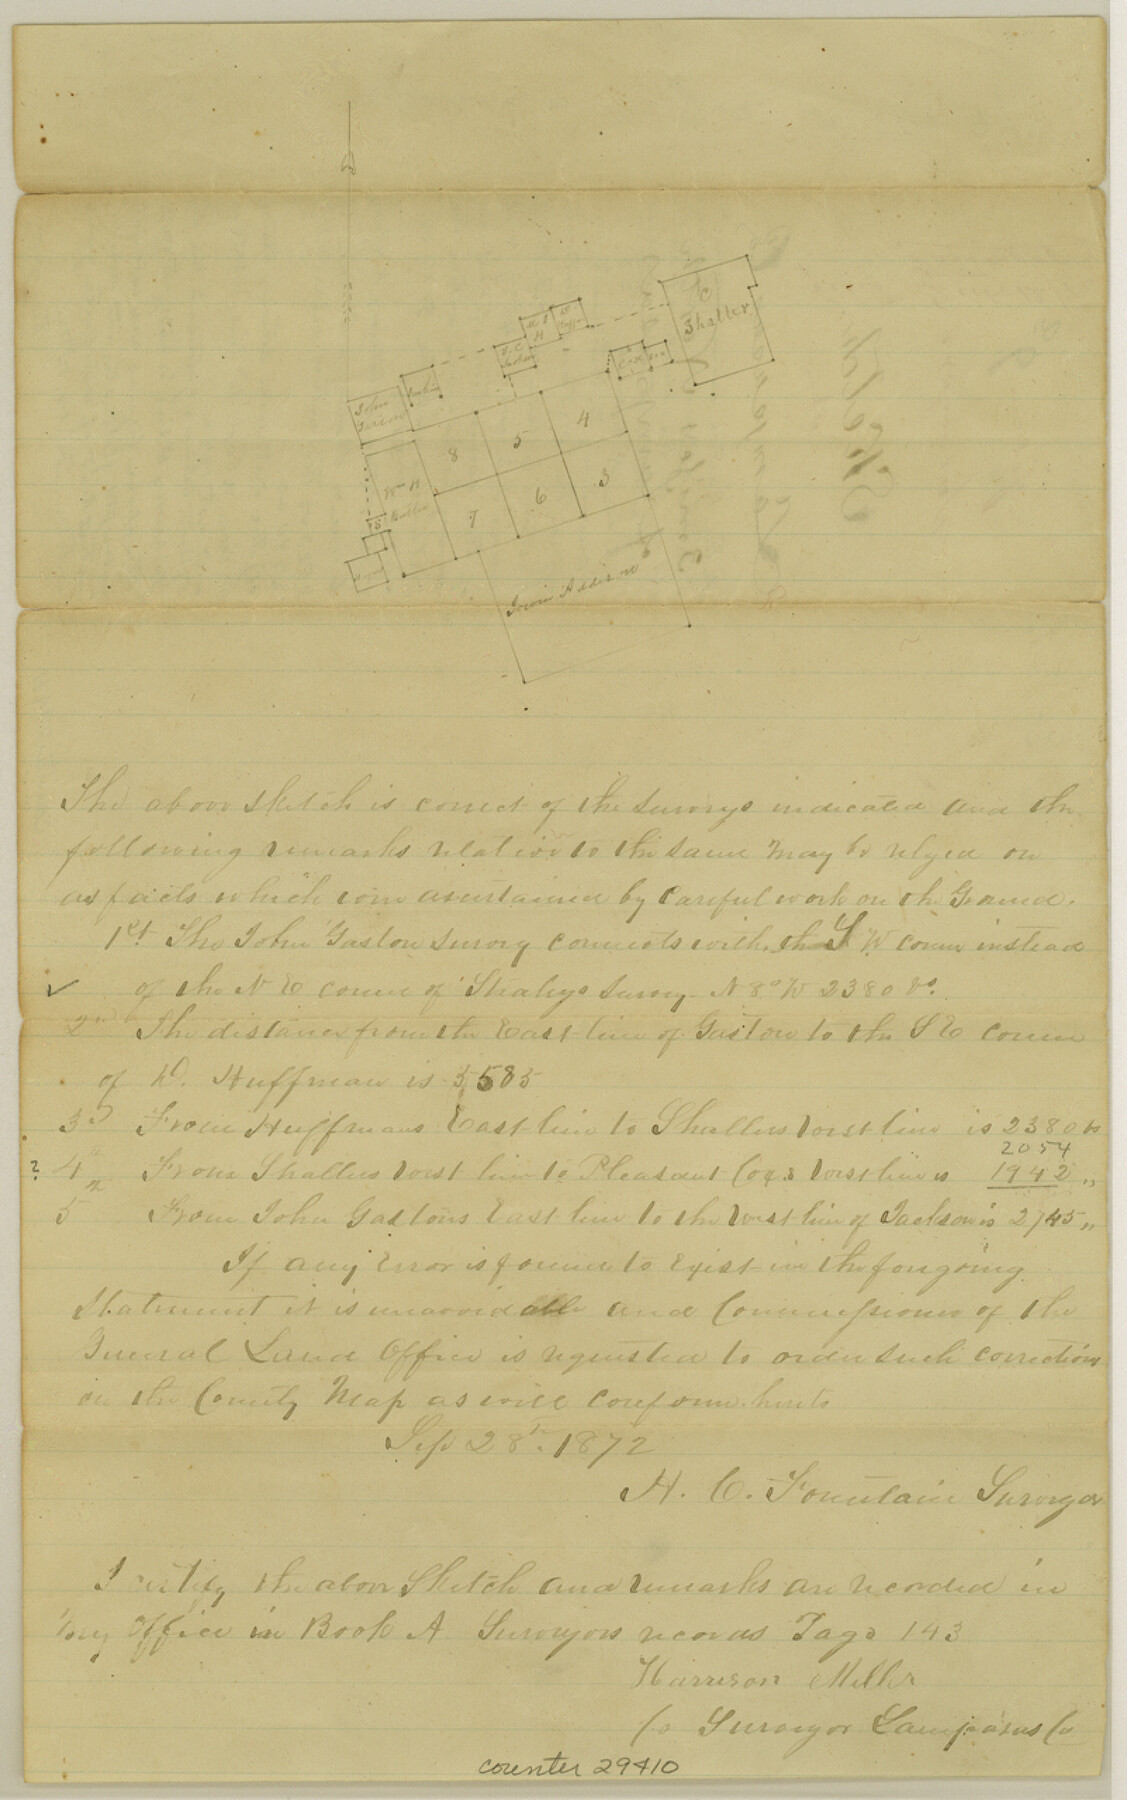 C
Shaller
John
Gaston
8
5
4
7
6
3
W H
The above sketch is correct of the surveys indicated and the
following remarks relative to the same may be relyed on
as facts which were ascertained by careful work on the Ground.
1st The John Gaston survey connects with the S W corner instead
of the N E corner of Stealeys survey N 8° W 2380 Vs.
2nd The distance from the East line of Gaston to the S E corner
of D. Huffman is 5585
3d From Huffmans East line to Shallers West line is 2380 vs
2054
? 4th From Shallers West line to Pleasant Cox's West line is 1942 "
5th From John Gastons East line to the West line of Jackson is 2745 "
If any Error is found to Exist in the foregoing
Statement it is unavoidable and Commissioner of the
General Land Office is requested to order such corrections
on the County Map as will conform hereto
Sep 28th. 1872
H. C. Fountain Surveyor
I certify the above Sketch and remarks are recorded in
my office in Book A Surveyors records Page 143
Harrison Miller
Co Surveyor Lampasas Co
counter 29410